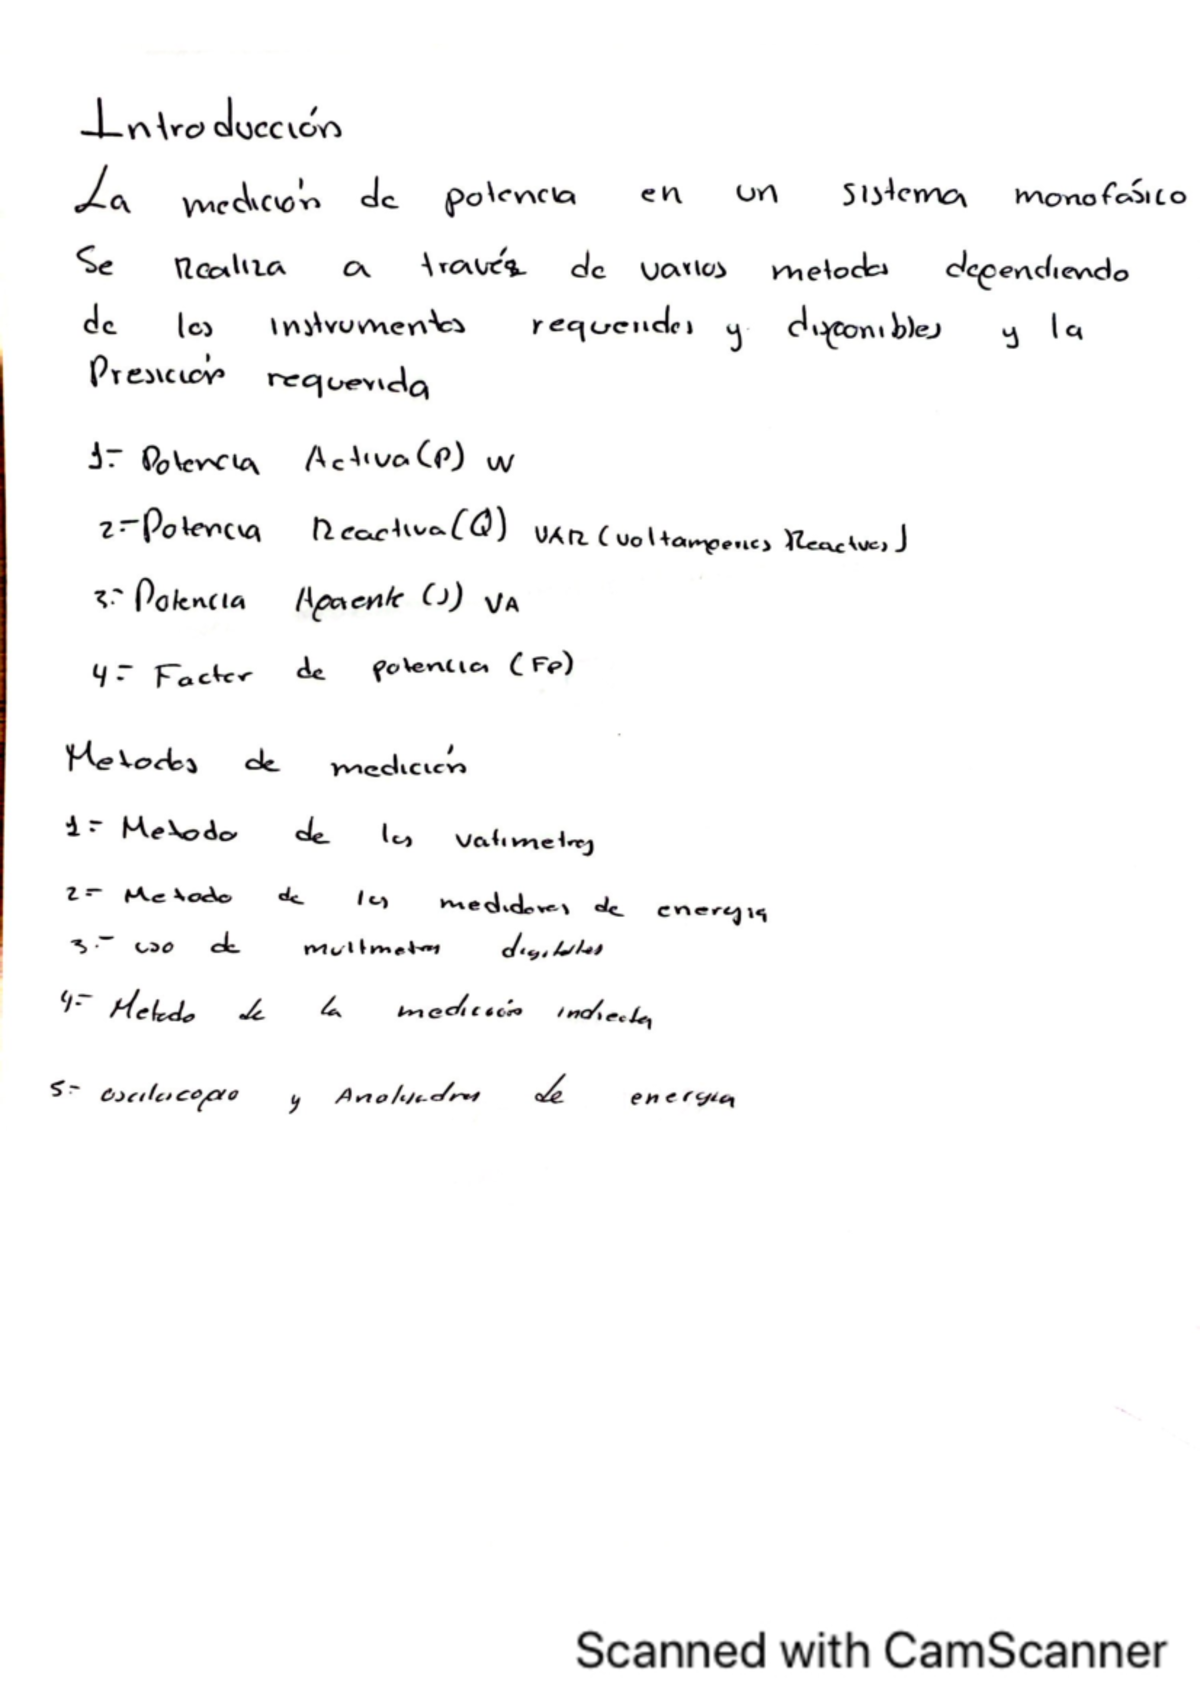 Introducción
La medición de potencia en un sistema monofásico
Se Realiza a través de varios metodos dependiendo
de los instrumentos requeridos y disponibles y la
Presición requerida
1.- Potencia Activa (P) W
2.- Potencia Reactiva (Q) VAR (voltamperios Reactivos)
3.- Potencia Aparente (S) VA
4.- Factor de potencia (FP)
Metodos de medición
1.- Metodo de los vatimetros
2.- Metodo de los medidores de energia
3.- uso de multimetros digitales
4.- Metodo de la medición indirecta
5.- osciloscopio y Analizadores de energia
Scanned with CamScanner